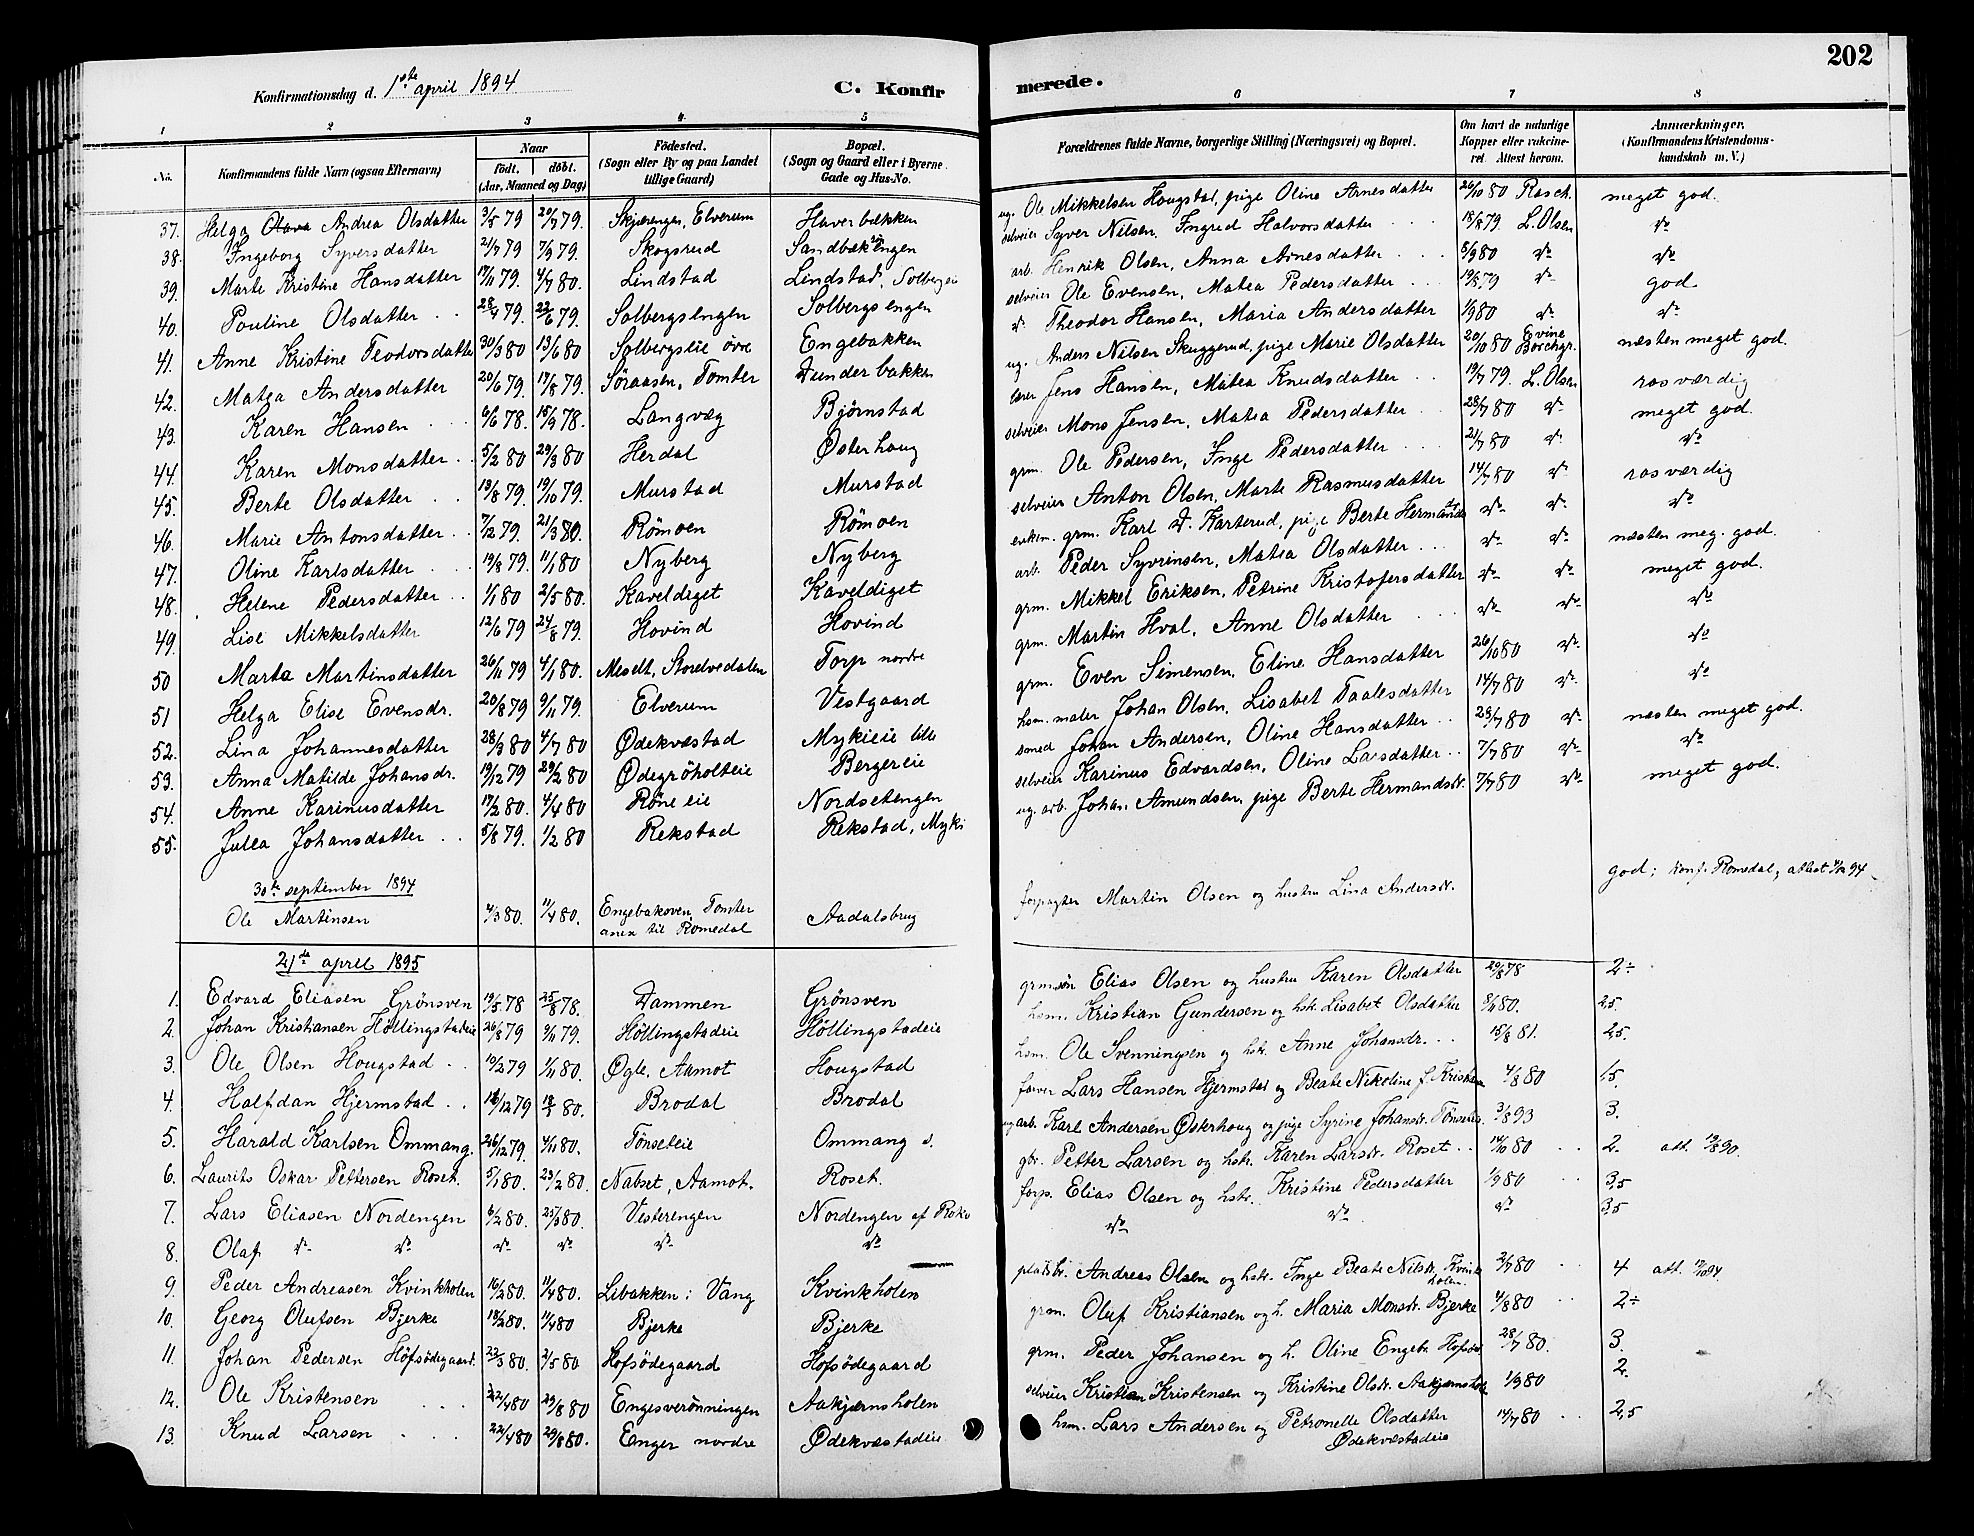 202
Konfirmationsdag d. 1ste april 1894
C. Konfir
merede.
1 2 3 4 5 6 7 8
No.
Konfirmandens fulde Navn (ogsaa Efternavn)
Naar
født. døbt.
(Aar, Maaned og Dag)
Fødested.
(Sogn eller By og paa Landet
tillige Gaard)
Bopæl.
(Sogn og Gaard eller i Byerne
Gade og Hus-No.
Forældrenes fulde Navne, borgerlige Stilling (Næringsvei) og Bopæl.
Om havt de naturlige
Kopper eller vakcine-
ret. Attest herom.
Anmærkninger.
(Konfirmandens Kristendoms-
kundskab m. V.)
37. Helga Olava Andrea Olsdatter 3/5 79 20/7 79. Skjærengen, Elverum Haverbækken ug. Ole Mikkelsen Hougstad, pige Oline Arnesdatter 26/10 80 Rasch. meget god.
38. Ingeborg Syversdatter 21/7 79 7/9 79. Skogsrud Sandbækengen selveier Syver Nilsen, Ingrud Halvorsdatter 18/8 79. L. Olsen do
39. Marte Kristine Hansdatter 17/11 79. 4/7 80. Lindstad Lindstad, Solbergeie arb. Henrik Olsen, Anna Arnesdatter 8/9 80 do do
40. Pouline Olsdatter 28/4 79. 22/6 79. Solbergsengen Solbergsengen selveier Ole Evensen, Matea Pedersdatter 19/8 79 do god
41. Anne Kristine Teodorsdatter 30/3 80 13/6 80 Solbergseie øvre Engebakken do Theodor Hansen, Maria Andersdatter 1/9 80 do do
42. Matea Andersdatter 20/6 79. 17/8 79. Søraasen, Tomter Dunderbakken ug. Anders Nilsen Skuggerud, pige Marie Olsdatter 20/10 80 Evine Borchgr. næsten meget god.
43. Karen Hansen 6/6 78. 15/9 78. Langvæg Bjørnstad lærer Jens Hansen, Matea Knudsdatter 19/7 79. L. Olsen rosværdig
44. Karen Monsdatter 5/2 80 29/3 80 Herdal Østerhaug selveier Mons Jensen, Matea Pedersdatter 28/7 80 do meget god.
45. Berte Olsdatter 13/8 79. 19/10 79. Murstad Murstad grm. Ole Pedersen, Inge Pedersdatter 21/7 80 do do
46. Marie Antonsdatter 7/12 79. 21/3 80. Rømoen Rømoen selveier Anton Olsen, Marte Rasmusdatter 14/7 80 do rosværdig
47. Oline Karlsdatter 19/8 79. 11/1 80 Nyberg Nyberg enkem. grm. Karl D. Karterud, pige Berte Hermansdr do do do
48. Helene Pedersdatter 1/1 80 2/5 80. Kaveldiget Kaveldiget arb. Peder Syvrinsen, Matea Olsdatter do do næsten meg. god.
49. Lise Mikkelsdatter 12/6 79 24/8 79. Hovind Hovind grm. Mikkel Eriksen, Petrine Kristofersdatter do do meget god.
50 Marta Martinsdatter 26/11 79 4/1 80. Meselt, Storelvedalen Torp nordre grm. Martin Hval, Anne Olsdatter do do do
51 Helga Elise Evensdr. 20/8 79 9/11 79. Elverum Vestgaard grm. Even Simensen, Eline Hansdatter 26/10 80 do do
52. Lina Johannesdatter 28/3 80 4/7 80 Ødekvæstad Mykieie lille hsm. maler Johan Olsen, Lisabet Taalesdatter 14/7 80 do do
53. Anna Matilde Johansdr. 19/12 79 29/2 80 Ødegrøholteie Bergereie smed Johan Andersen, Oline Hansdatter 23/7 80 do næsten meget god.
54. Anne Karinusdatter 17/2 80. 4/4 80 Røneeie Nordsetengen selveier Karinus Edvardsen, Oline Larsdatter 7/7 80 do do
55. Julia Johansdatter 5/8 79. 1/2 80 Rekstad Rekstad, Myki ug. arb. Johan Amundsen, pige Berte Hermandsdr. 7/7 80 do meget god.
30te september 1894
Ole Martinsen 4/3 80. 11/4 80. Engebakoven, Tomter anex til Romedal Aadalsbrug forpagter Martin Olsen og hustru Lina Andersdr. god; konf. Romedal, attest 4/12 94
21de april 1895
1. Edvard Eliasen Grönsven 19/5 78 25/8 78. Dammen Grönsven grm. Elias Olsen og hustru Karen Olsdatter 29/8 78 2÷
2. Johan Kristiansen Höllingstadeie 26/8 79 9/11 79. Höllingstadeie Höllingstadeie hsm. Kristian Gundersen og hstr. Lisabet Olsdatter 8/11 80. 2,5.
3. Ole Olsen Hougstad 19/2 79 1/11 80. Øgle, Aamot Hougstad hsm. Ole Svenningsen og hstr. Anne Johansdr. 15/8 81. 2,5.
4. Halfdan Hjermstad 18/12 79 18/5 80. Brodal Brodal farver Lars Hansen Hjermstad og Beate Nikoline f. Kristians 4/8 80 1,5.
5. Harald Karlsen Ommang. 26/12 79. 4/11 80. Tönseteie Ommang s. ug arb. Karl Andersen Østerhoug og pige Syrine Johansdr. Tönseteie. 3/8 93 3.
6. Laurits Oskar Pettersen Roset. 5/1 80. 23/2 80. Nabset, Aamot. Roset. gbr. Petter Larsen og hstr. Karen Larsdr. Roset 14/10 80 2. att. 19/8 90.
7. Lars Eliasen Nordengen 6/2 80. 25/3 80. Vesterengen Nordengen af Roko forp. Elias Olsen og hstr. Kristine Pedersdatter 1/9 80 3,5
8. Olaf do do do do do do do do do 3,5
9. Peder Andreasen Kvinkholen 16/2 80. 11/4 80. Libakken i Vang Kvinkholen pladsbr. Andreas Olsen og hstr. Inge Beate Nilsdr. Kvinkholen. 2/7 80 4 att.
10. Georg Olufsen Bjerke 18/2 80. 11/4 80 Bjerke Bjerke grm. Oluf Kristiansen og h. Maria Monsdr. Bjerke 4/8 80 2÷
11. Johan Pedersen Höfsödegaard. 23/3 80. 2/5 80 Hofsödegaard Hofsödegaard grm. Peder Johansen og h. Oline Engebr. Hofsöd. 28/7 80. 3.
12. Ole Kristensen 22/4 80 29/8 80 Engesverönningen Aakjærnsholen selveier Kristian Kristensen og Kristine Olsdr. Aakjærnshole 1/9 80 2.
13. Knud Larsen 22/4 80 29/8 80. Enger nordre Ødekvæstadeie hsm. Lars Andersen og Petronelle Olsdatter Ødekvæstadeie 14/7 80 2,5